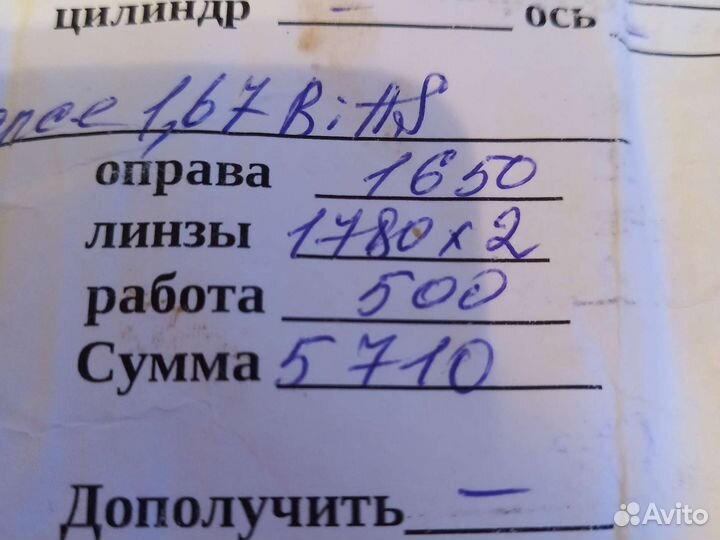 цилиндр – ось
1,67 Bi AS
оправа 1650
линзы 1780 x 2
работа 500
Сумма 5710
Дополучить –
Avito